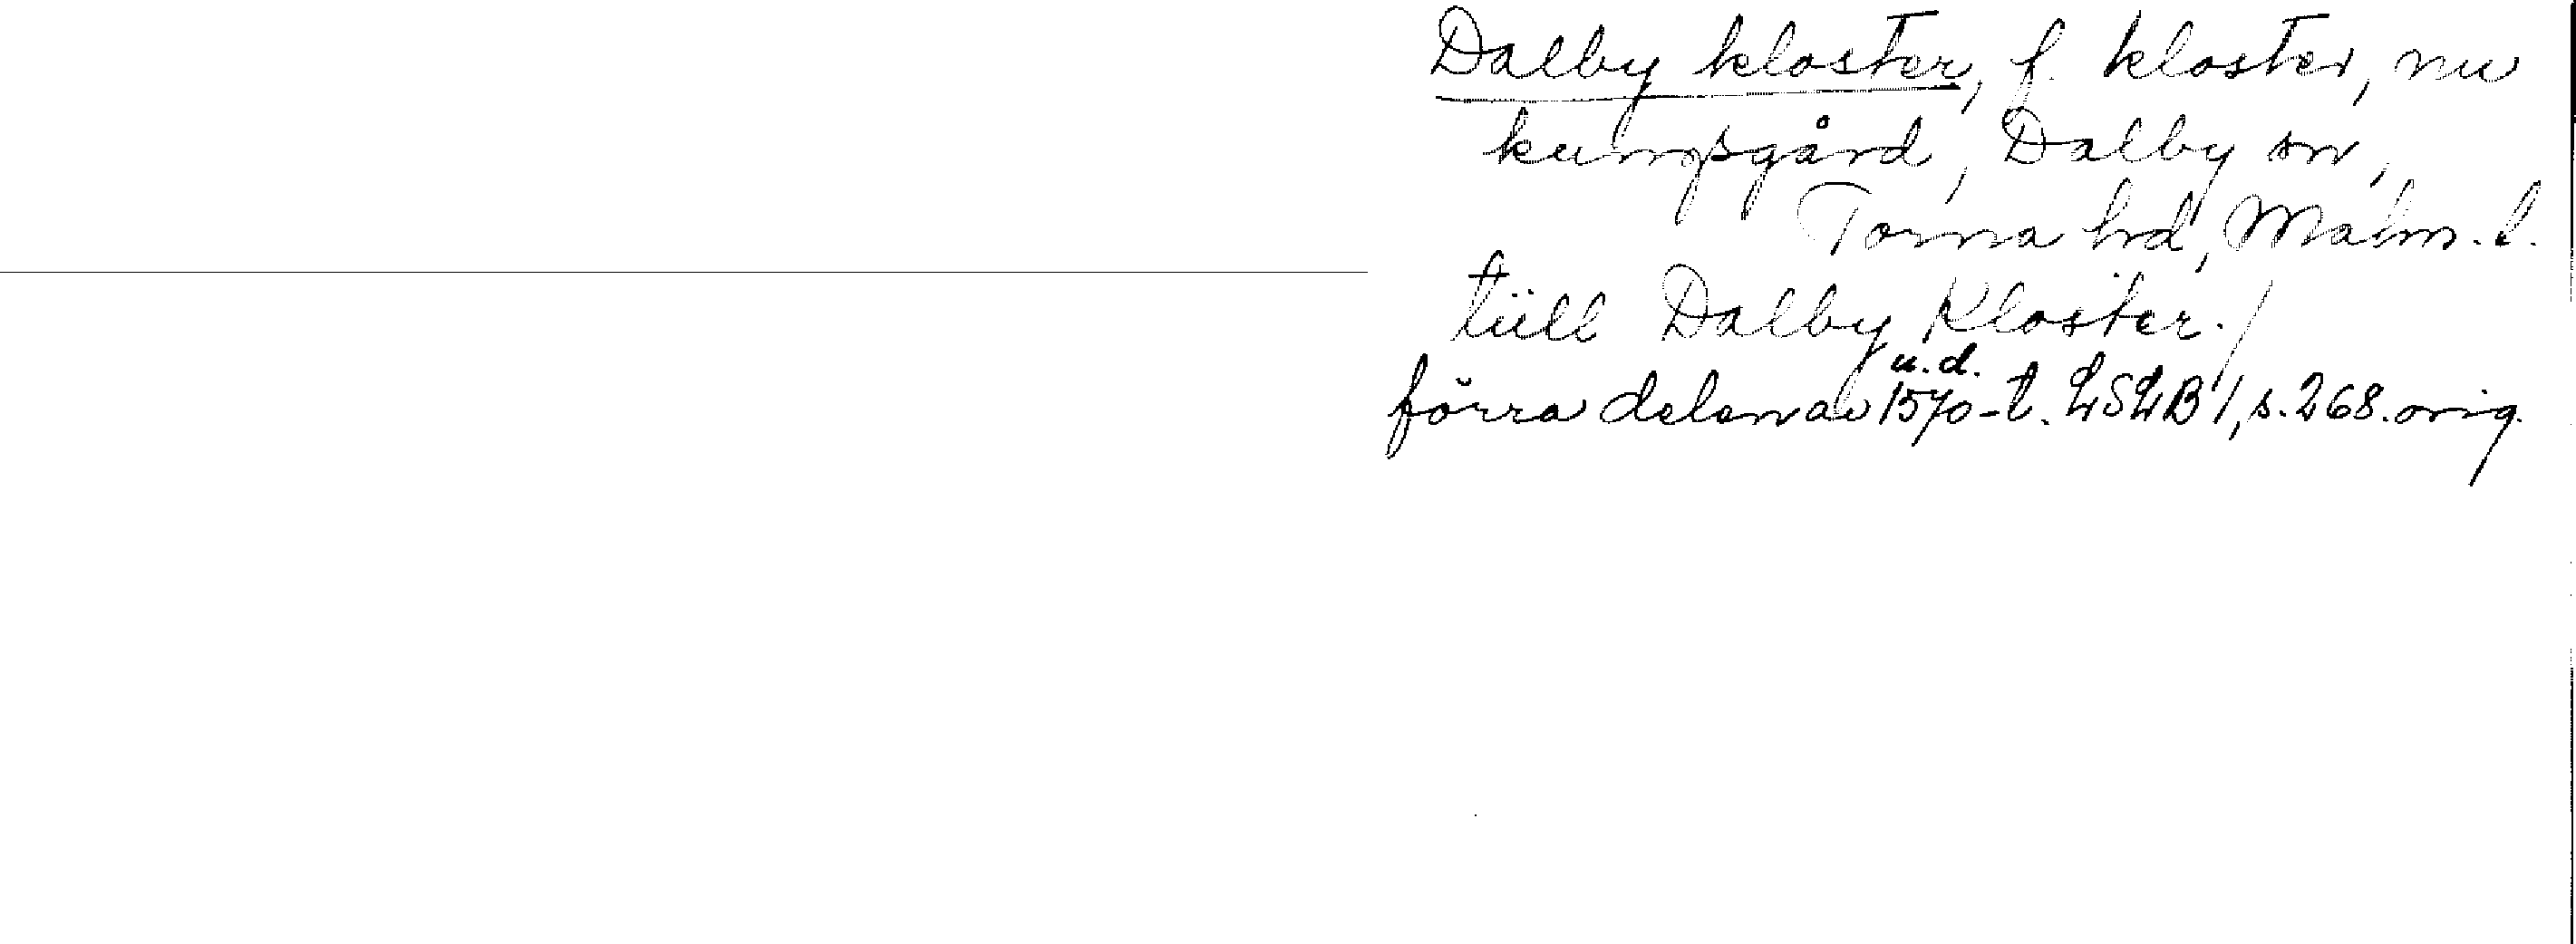 Dalby kloster, f. kloster, nu
kungsgård, Dalby sn,
Torna hd, Malm. l.
tiill Dalby Kloster./
u.d.
förra delen av 1570-t. LSLB 1, s. 268. orig.